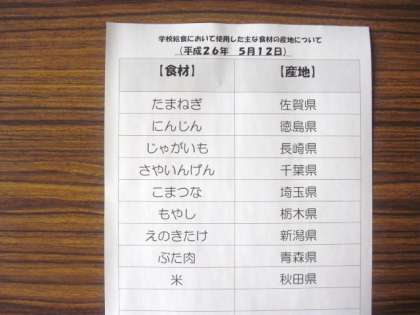 学校給食において使用した主な食材の産地について
（平成26年　5月12日）
【食材】　【産地】
たまねぎ　佐賀県
にんじん　徳島県
じゃがいも　長崎県
さやいんげん　千葉県
こまつな　埼玉県
もやし　栃木県
えのきたけ　新潟県
ぶた肉　青森県
米　秋田県